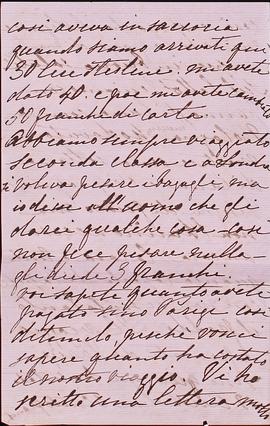 così aveva in saccoccia
quando siamo arrivati qui
30 lire sterline mi avete
dato 40 e poi mi avete cambiato
50 franchi di carta.
Abbiamo sempre viaggiato
seconda classe e a Londra
si voleva pesare i bagagli, ma
io disse all'uomo che gli
darei qualche cosa così
non fece pesare nulla
gli diede 3 franchi.
voi sapete quanto avete
pagato sino Parigi così
ditemelo perchè vorrei
sapere quanto ha costato
il nostro viaggio. Vi ho
scritto una lettera molto